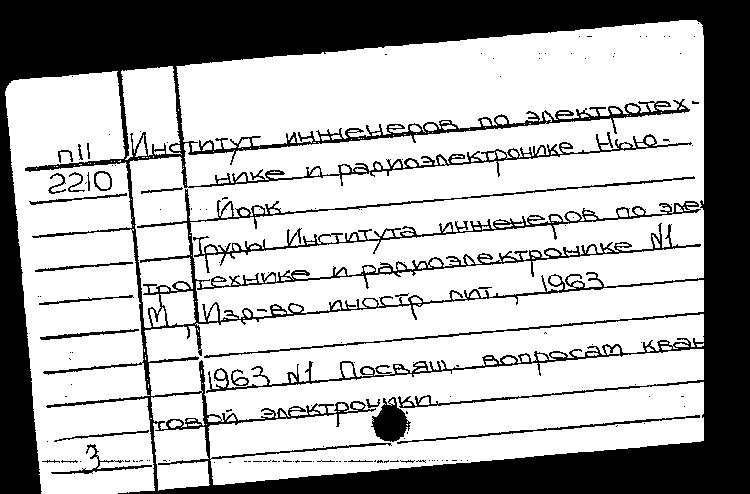 п11 Институт инженеров по электротех-
2210 нике и радиоэлектронике. Нью-
Йорк
Труды Института инженеров по элек
тротехнике и радиоэлектронике №1
М., Изд-во иностр лит., 1963
1963 №1 Посвящ. вопросам кван
товой электроники.
3